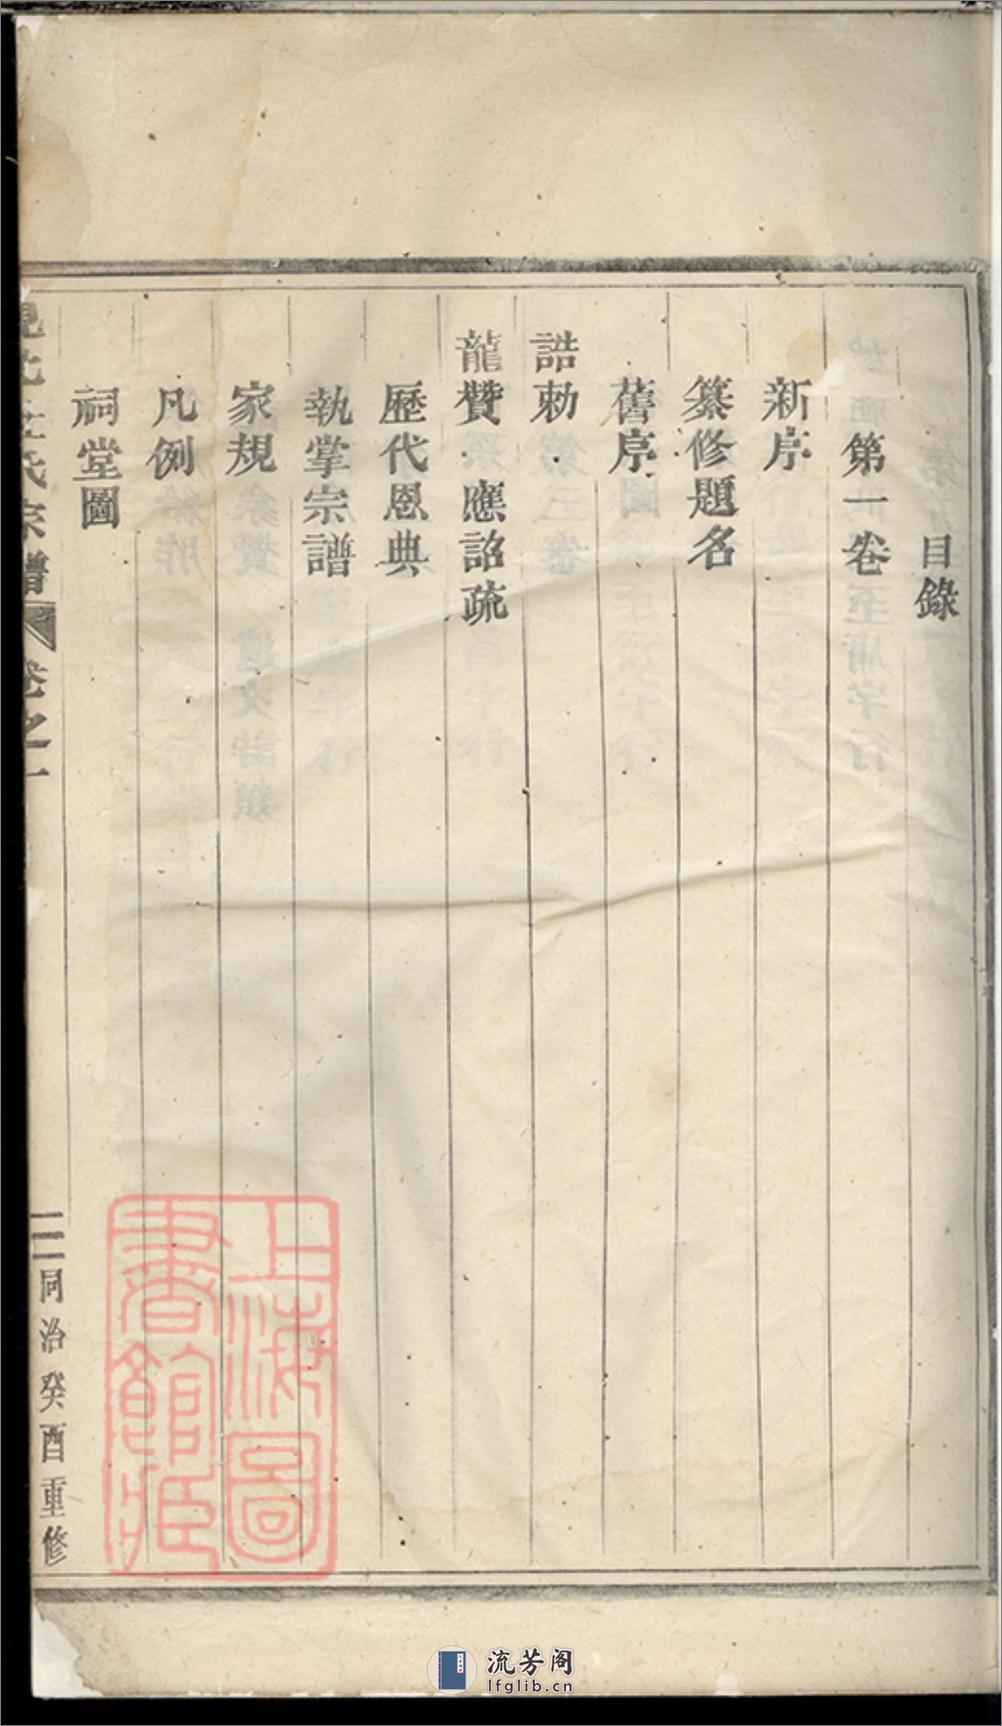 目錄
第一卷
新序
纂修題名
舊序
誥勅
龍贊 應詔疏
歷代恩典
執掌宗譜
家規
凡例
祠堂圖
氏宗譜 卷之一
三 同治癸酉重修
上海圖書館藏
流芳阁
lfglib.cn